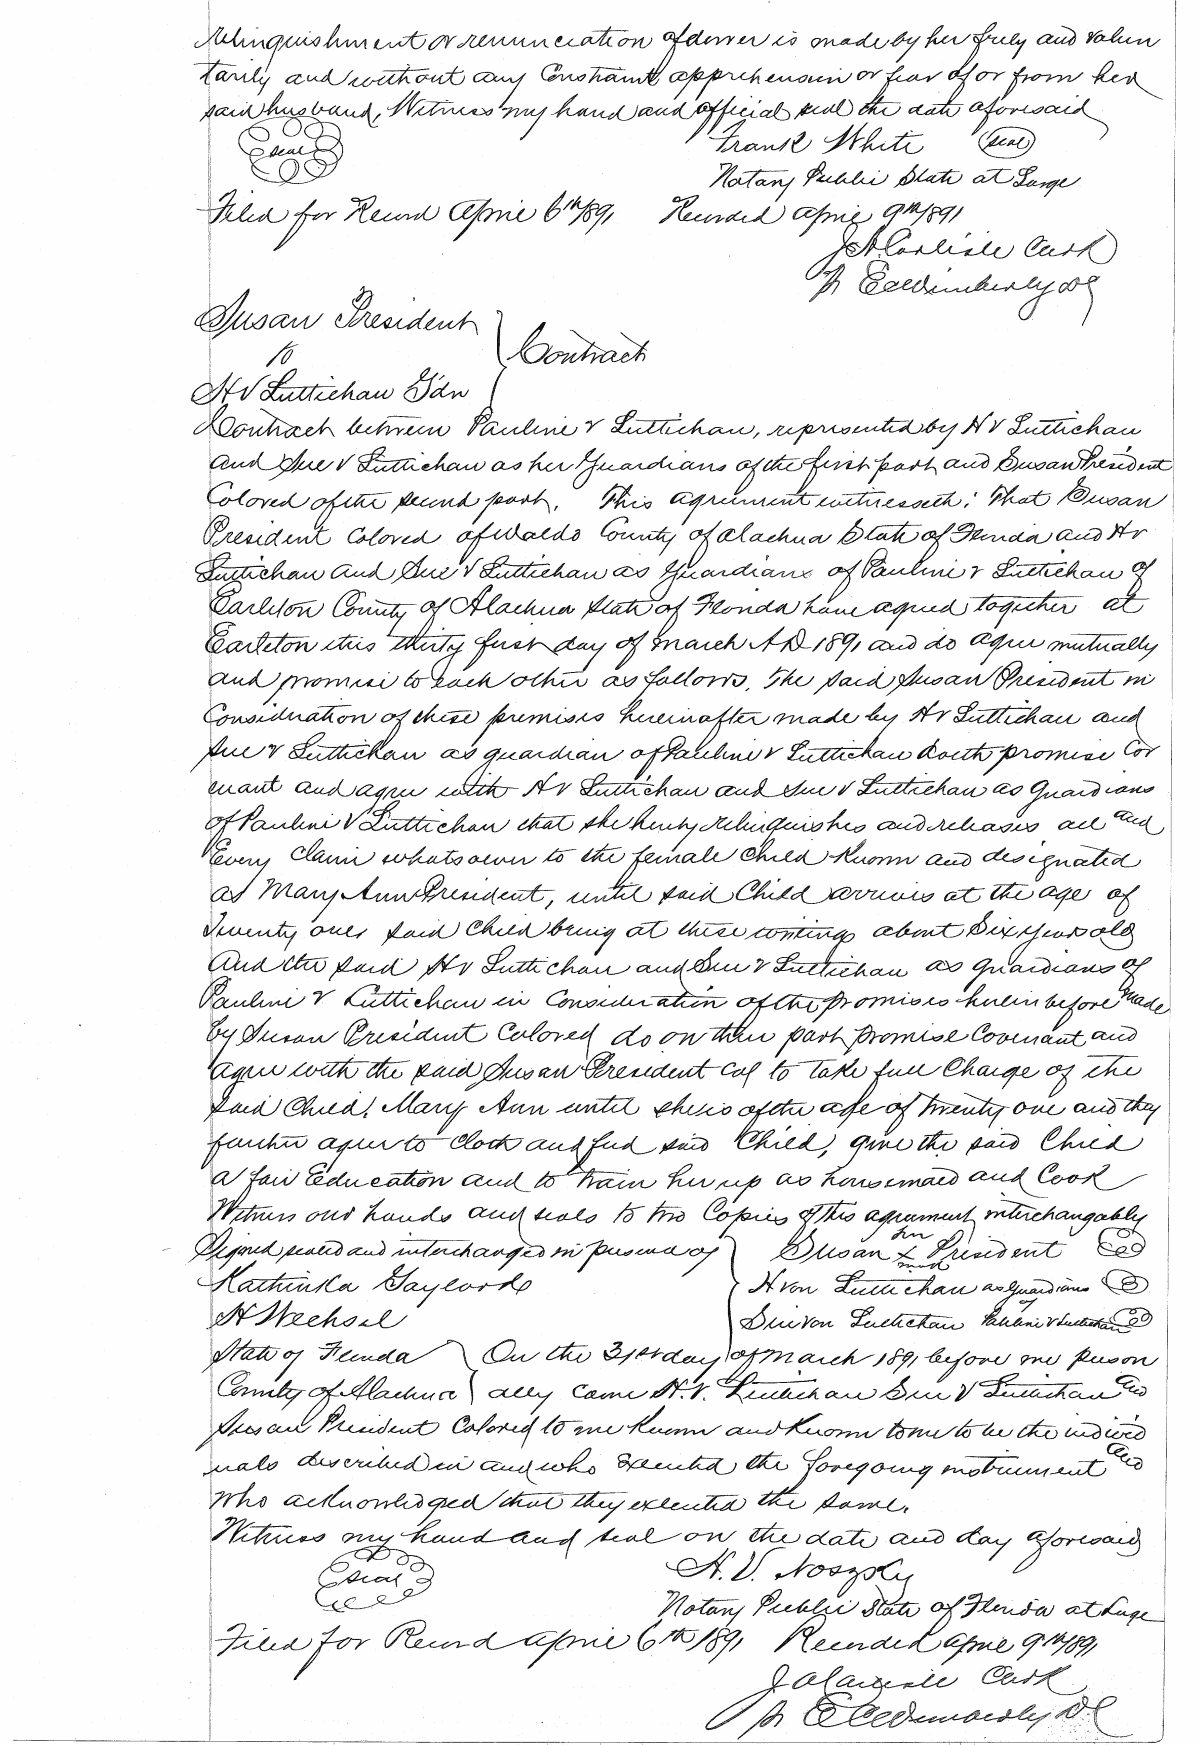 relinquishment or renunciation of dower is made by her freely and volun
tarily and without any Constraint, apprehension or fear of or from her
said husband, Witness my hand and official seal the date aforesaid
seal Frank White seal
Notary Public State at Large
Filed for Record April 6th 1891 Recorded April 9th 1891
J A Carlisle Clerk
Pr E C Wimberly DC
Susan President
to Contract
H V Luttichau Gdn
Contract between Pauline V Luttichau, represented by H V Luttichau
and Sue V Luttichau as her Guardians of the first part and Susan President
Colored of the second part. This agreement witnesseth: That Susan
President Colored of Waldo County of Alachua State of Florida and H V
Luttichau and Sue V Luttichau as Guardians of Pauline V Luttichau of
Earleton County of Alachua State of Florida have agreed together at
Earleton this thirty first day of March A.D. 1891 and do agree mutually
and promise to each other as follows. The said Susan President in
Consideration of these premises hereinafter made by H V Luttichau and
Sue V Luttichau as guardian of Pauline V Luttichau doeth promise Cov
enant and agree with H V Luttichau and Sue V Luttichau as Guardians
of Pauline V Luttichau that she hereby relinquishes and releases all and
Every Claim whatsoever to the female Child Known and designated
as Mary Ann President, until said Child arrives at the age of
Twenty one, said Child being at these writings about Six years old
And the said H V Luttichau and Sue V Luttichau as guardians of
Pauline V Luttichau in Consideration of the promises hereinbefore made
by Susan President Colored do on their part promise Covenant and
agree with the said Susan President Col to take full Charge of the
said Child, Mary Ann until she is of the age of twenty one and they
further agree to cloth and feed said Child, give the said Child
a fair Education and to train her up as housemaid and Cook
Witness our hands and seals to two Copies of this agreement interchangably
Signed, sealed and interchanged in presence of Susan her x mark President
Kathinka Gaylord H von Luttichau as Guardians of
H Wechsel Sue von Luttichau Pauline V Luttichau
State of Florida On the 31st day of March 1891 before me person
County of Alachua ally came H.V. Luttichau Sue V Luttichau and
Susan President Colored to me Known and Known to me to be the individ
uals described in and who Executed the foregoing instrument and
who acknowledged that they executed the same.
Witness my hand and seal on the date and day aforesaid
seal H. V. Noszky
Notary Public State of Florida at Large
Filed for Record April 6th 1891 Recorded April 9th 1891
J A Carlisle Clerk
Pr E C Wimberly D.C.